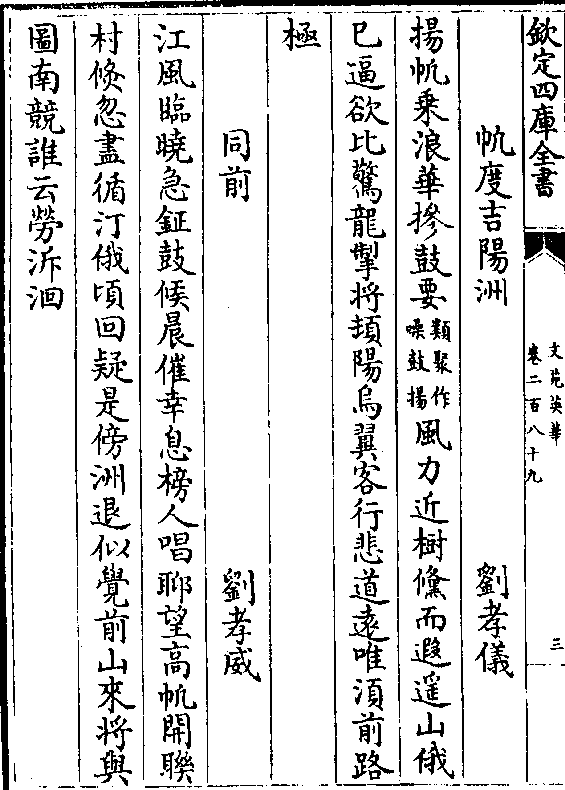 欽定四庫全書
文苑英華
卷二百八十九
三
帆度吉陽洲 劉孝儀
揚帆乗浪華摻鼓要類聚作嗓鼓揚風力近樹儵而遐遥山俄
巳逼欲比驚龍掣將頡陽烏翼客行悲道遠唯湏前路
極
同前 劉孝威
江風臨曉急鉦鼓候晨催幸息榜人唱聊望髙帆開聯
村倏忽盡循汀俄頃回疑是傍洲退似覺前山來將與
圖南競誰云勞泝洄